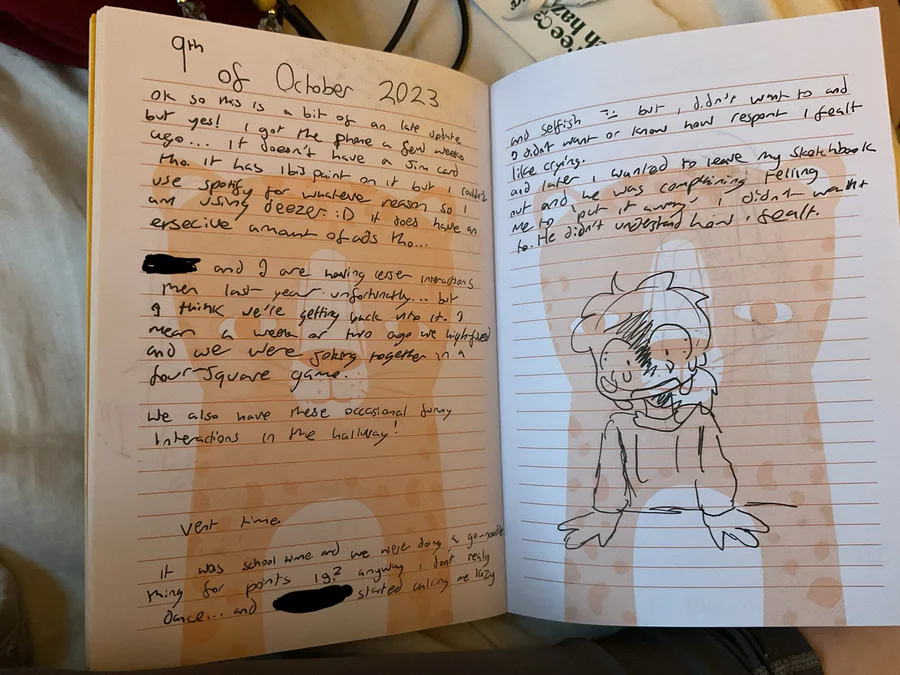 9th
of October 2023
Ok so this is a bit of an late update
but yes! I got the phone a few weeks
ago... It doesn't have a Sim card
tho. it has ibis paint on it but I couldn't
use spotify for whatever reason so I
am using deezer :D it does have an
ersecive amount of ads tho...
and I are having lesser interactions
then last year unfortunatly... but
I think we're getting back into it. I
mean a week or two ago we high-fived
and we were joking together in a
four-square game.
We also have these occasional funny
Interactions in the hallway!
Vent time.
It was school time and we were doing a go-noodle
thing for points ig? anyway i don't really
dance... and started calling me lazy
and selfish but i didn't want to and
I didn't want or know how respont I fealt
like crying.
and later i wanted to leave my sketchbook
out and he was complaining telling
me to put it away, i didn't
to. He didn't understand how i fealt.